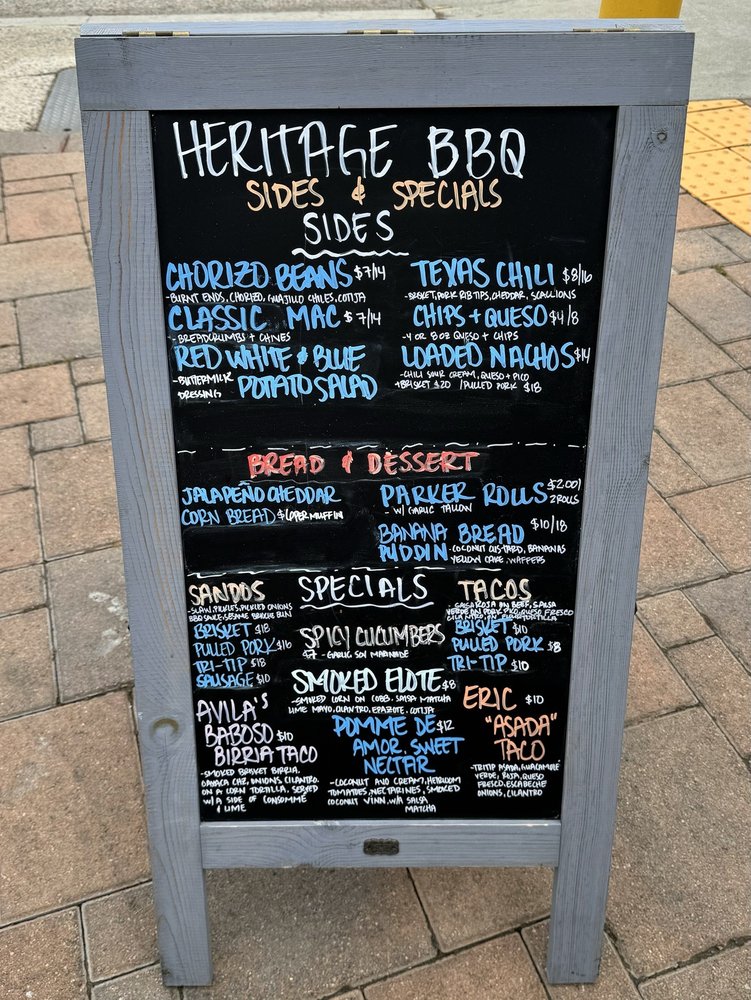 HERITAGE BBQ
SIDES & SPECIALS
SIDES
CHORIZO BEANS $7/14
-BURNT ENDS, CHORIZO, GUAJILLO CHILES, COTIJA
CLASSIC MAC $7/14
-BREADCRUMBS + CHIVES
RED WHITE & BLUE
-BUTTERMILK DRESSING POTATO SALAD
TEXAS CHILI $8/16
-BRISKET, PORK RIB TIPS, CHEDDAR, SCALLIONS
CHIPS + QUESO $4/8
-4 OR 8OZ QUESO + CHIPS
LOADED NACHOS $14
-CHILI SOUR CREAM, QUESO + PICO
+BRISKET $20 /PULLED PORK $18
BREAD & DESSERT
JALAPEÑO CHEDDAR
CORN BREAD PER MUFFIN
PARKER ROLLS $2.00/
- W/ GARLIC TALLOW 2 ROLLS
BANANA BREAD $10/18
PUDDIN -COCONUT CUSTARD, BANANAS
YELLOW CAKE, WAFFERS
SPECIALS
SANDOS
-SLAW, PICKLES, PICKLED ONIONS
BBQ SAUCE, SESAME BRIOCHE BUN
BRISKET $18
PULLED PORK $16
TRI-TIP $18
SAUSAGE $10
SPICY CUCUMBERS
$7 - GARLIC SOY MARINADE
SMOKED ELOTE $8
-SMOKED CORN ON COBB, SALSA MATCHA
LIME MAYO, CILANTRO, EPAZOTE, COTIJA
TACOS
-SALSA ROJA ON BEEF, SALSA
VERDE ON PORK PICO, QUESO FRESCO
CILANTRO, ON TORTILLA
BRISKET $10
PULLED PORK $8
TRI-TIP $10
AVILA'S
BABOSO $10
BIRRIA TACO
-SMOKED BRISKET BIRRIA,
OAXACA CHZ, ONIONS, CILANTRO.
ON A CORN TORTILLA, SERVED
W/ A SIDE OF CONSOMME
& LIME
POMME DE $12
AMOR, SWEET
NECTAR
-COCONUT AVO CREAM, HEIRLOOM
TOMATOES, NECTARINES, SMOKED
COCONUT VINN, W/A SALSA
MATCHA
ERIC $10
"ASADA"
TACO
-TRITIP ASADA, GUACAMOLE
VERDE, ROJA, QUESO
FRESCO, ESCABECHE
ONIONS, CILANTRO